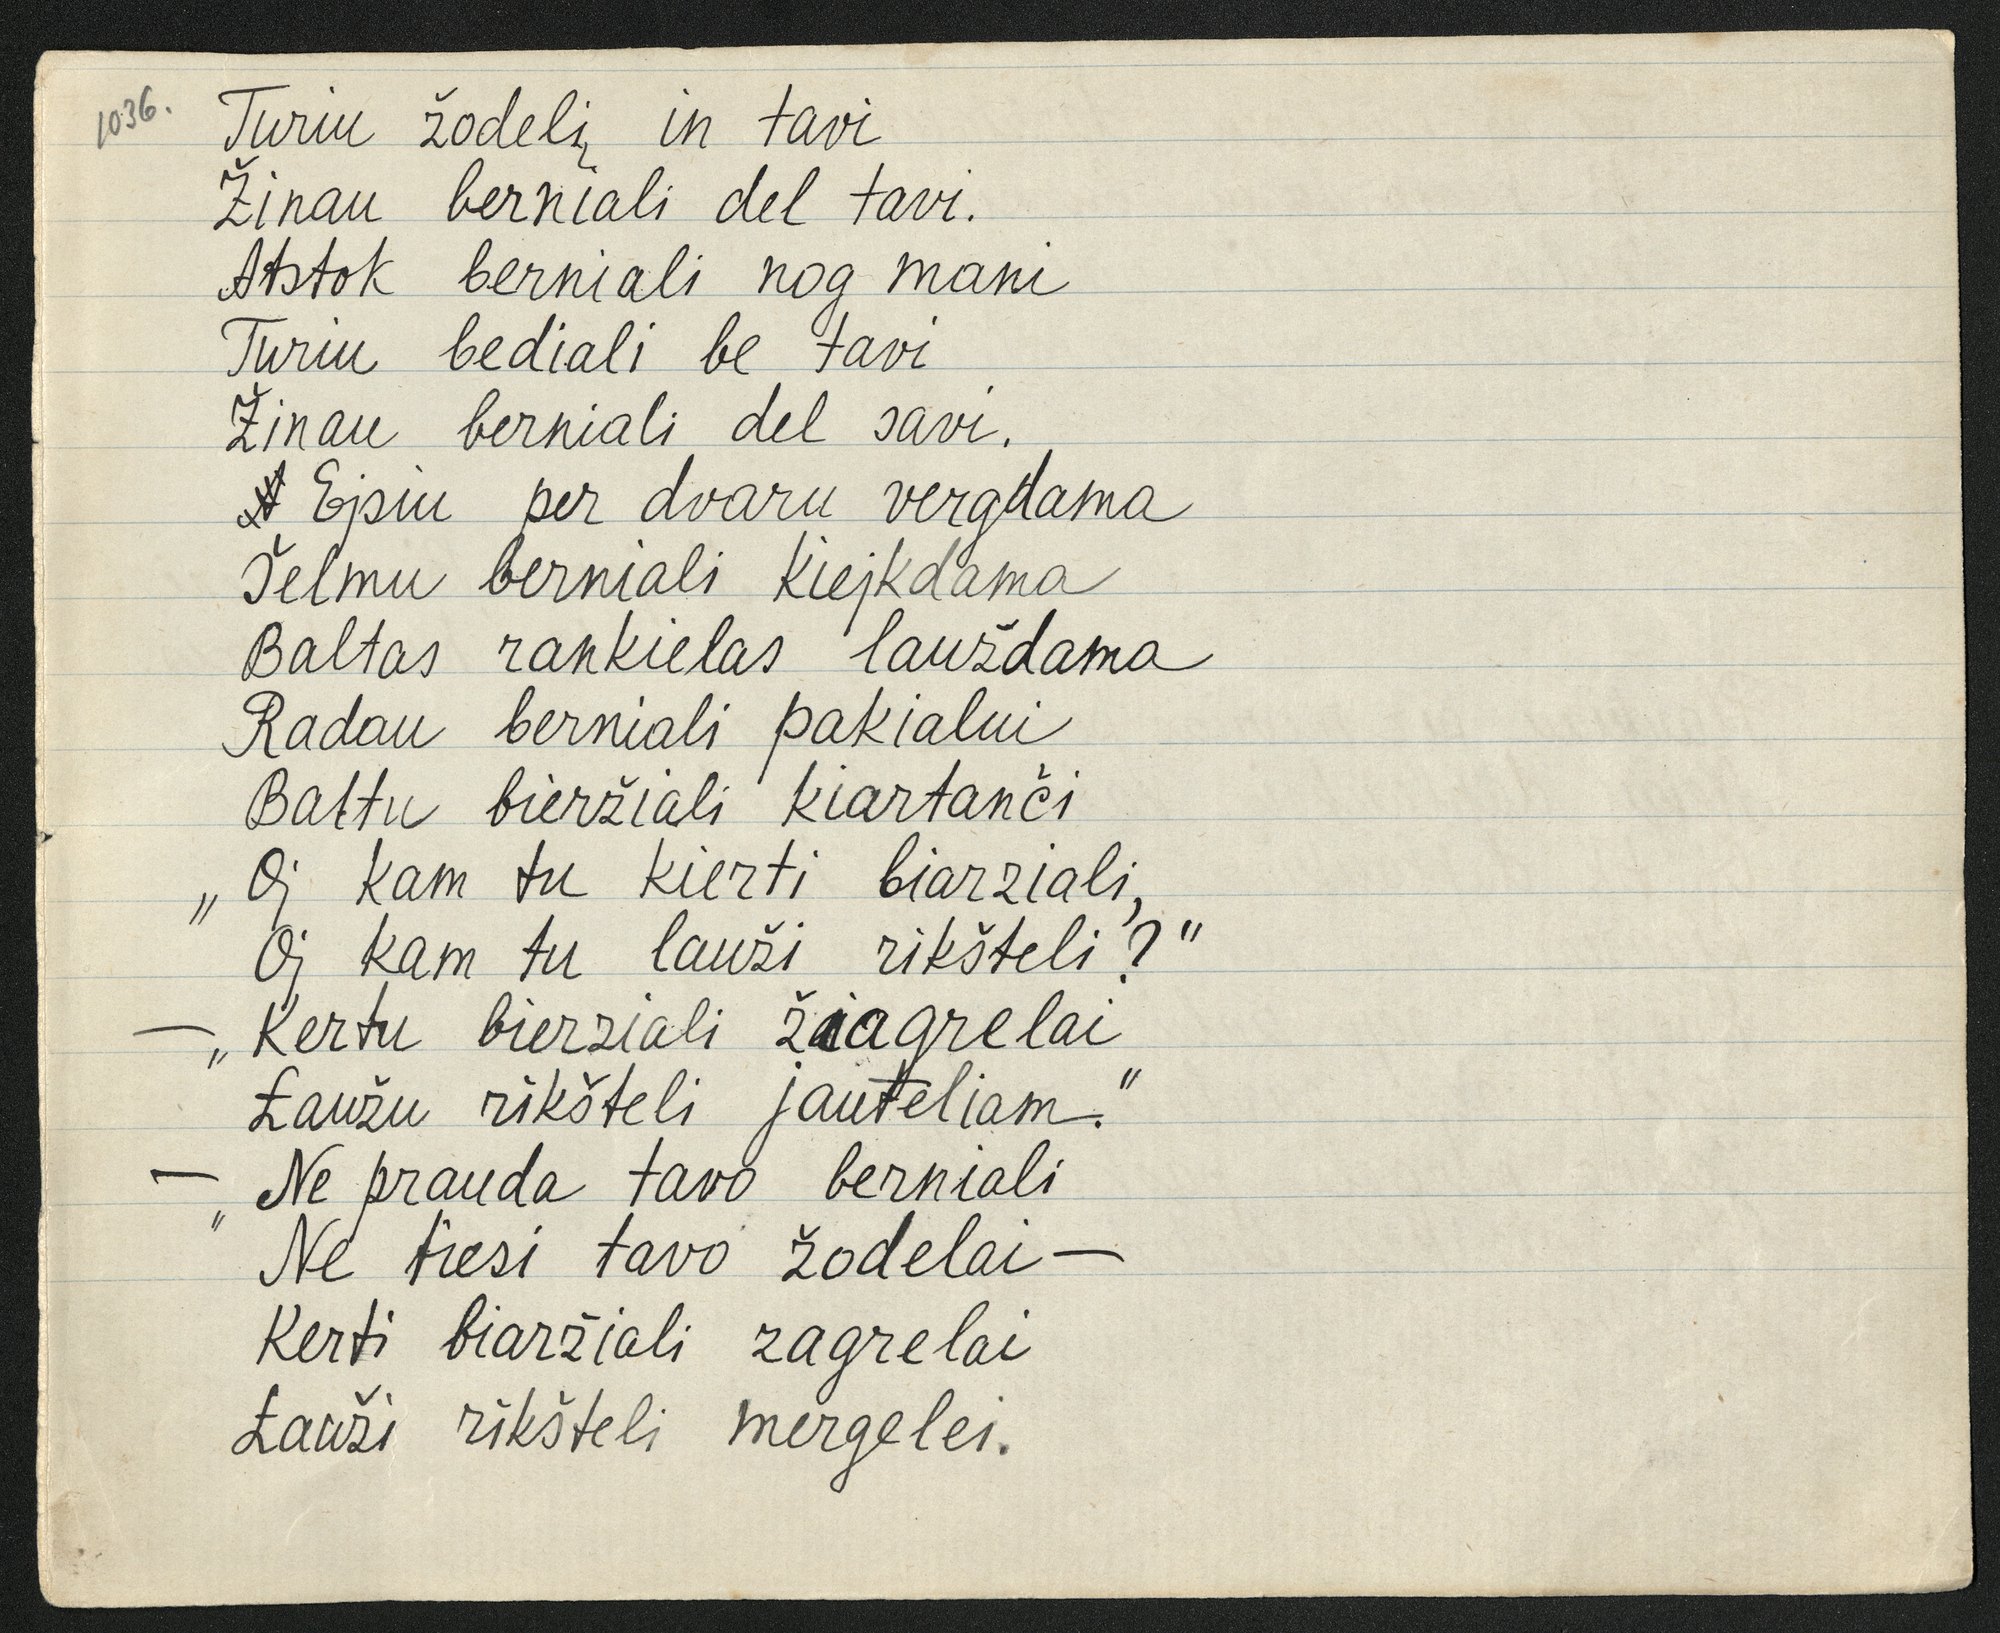 1036. Turiu žodelį in tavi
Žinau berniali del tavi.
Atstok berniali nog mani
Turiu bediali be tavi
Žinau berniali del savi.
Ejsiu per dvaru vergdama
Šelmu berniali kiejkdama
Baltas rankielas laušdama
Radau berniali pakialui
Baltu bieržiali kiartanči
„Oj kam tu kierti biarziali,
Oj kam tu lauži rikšteli?"
— „Kertu bierziali žagrelai
Łaužu rikšteli jauteliam."
— „Ne prauda tavo berniali
Ne tiesi tavo žodelai —
Kerti biaržiali zagrelai
Łauži rikšteli mergelei.